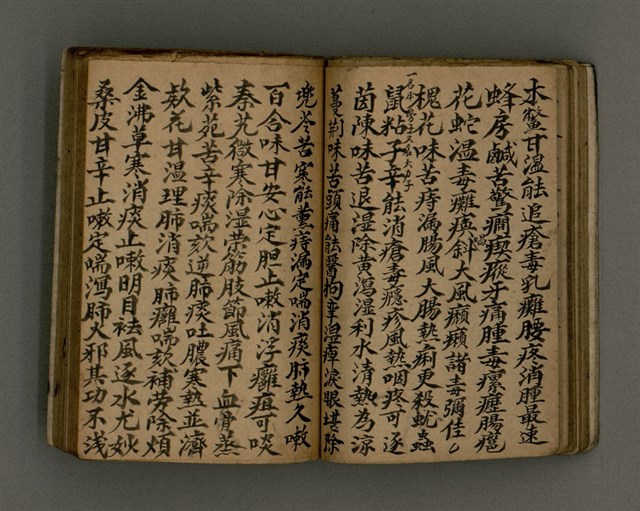 木鳖甘温能追瘡毒乳癰腰疼消腫最速
蜂房鹹苦驚癇瘈瘲牙痛腫毒瘰癧腸癰
花蛇温毒癱瘓㖞斜大風癩癩諸毒彌佳
槐花味苦痔漏腸風大腸熱痢更殺蚘蟲
鼠粘子辛能消瘡毒癮疹風熱咽疼可逐
茵陳味苦退湿除黄瀉湿利水清熱為涼
蔓荆味苦頭痛能醫拘挛湿痺淚眼堪除
兠苓苦寒能薰痔漏定喘消痰肺熱久嗽
百合味甘安心定胆止嗽消浮癰疽可啖
秦艽微寒除湿荣筋肢節風痛下血骨蒸
紫苑苦辛痰喘欬逆肺痰吐膿寒熱並濟
欵花甘温理肺消痰肺癰喘欬補劳除煩
金沸草寒消痰止嗽明目袪風逐水尤妙
桑皮甘辛止嗽定喘瀉肺火邪其功不浅